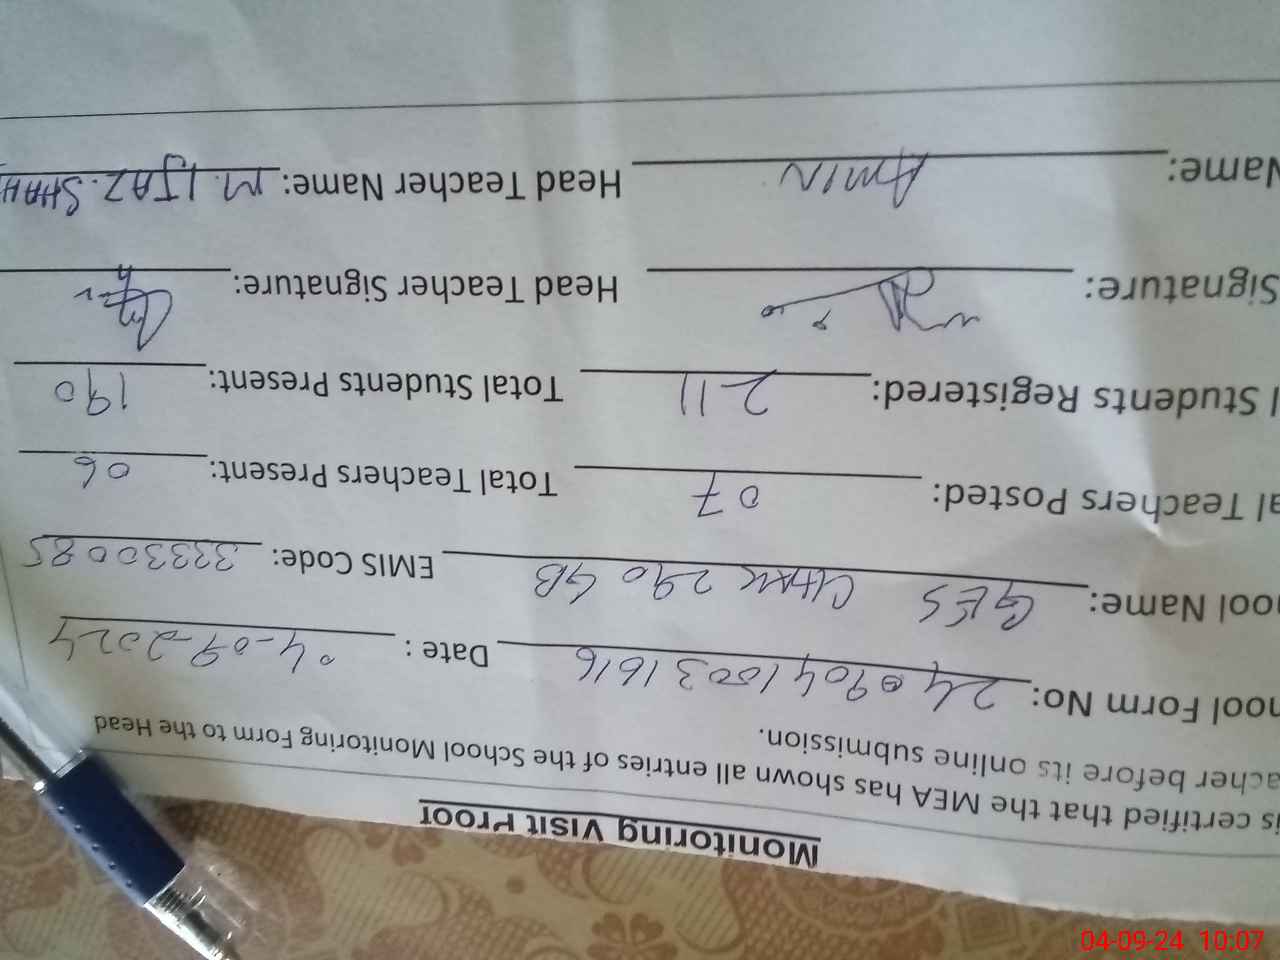 Monitoring Visit Proof
is certified that the MEA has shown all entries of the School Monitoring Form to the Head
acher before its online submission.
ool Form No: 24090410031616 Date : 04-09-2024
ool Name: GES CHAK 290 GB EMIS Code: 33330085
al Teachers Posted: 07 Total Teachers Present: 06
l Students Registered: 211 Total Students Present: 190
Signature: Head Teacher Signature:
Name: AMIN Head Teacher Name: M. IJAZ. SHAH
04-09-24 10:07